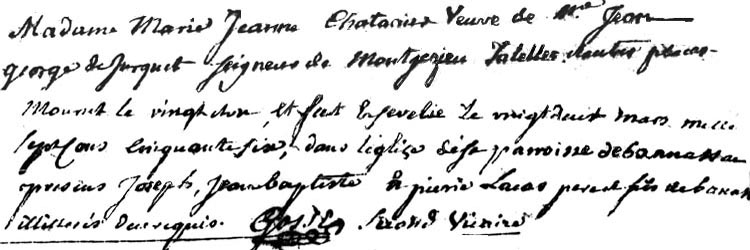 Madame Marie Jeanne Chatanier Veuve de Mre Jean
george de Jurquet Seigneur de Montgezieu Salelles &autres places
Mourut le vingt et un, et fut Ensevelie Le vingt duit mars mille
Sept Cens Cinquante Six, dans l'église de sa parroisse de bannassac
presens Joseph, Jean baptiste & pierre Lacas pere et fils de banas
illitterés de ce requis. Second Vicaire